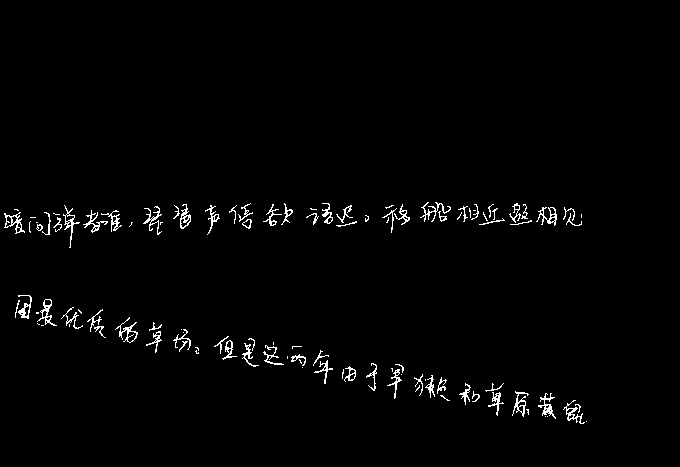 暗问弹者谁,琵琶声停欲语迟。移船相近邀相见
国最优质的草场。但是这两年由于旱獭和草原黄鼠